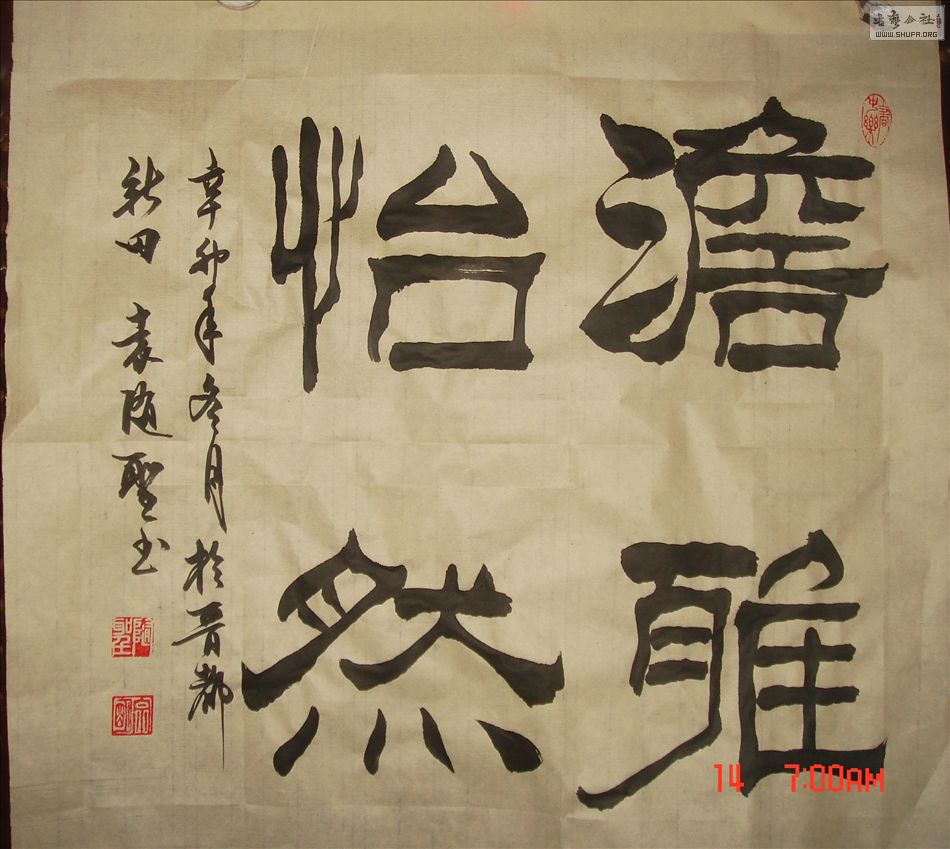 澹雅
怡然
辛卯年冬月於晋都
秋田 袁随聖书
随聖
书艺公社
WWW.SHUFA.ORG
14 7:00AM